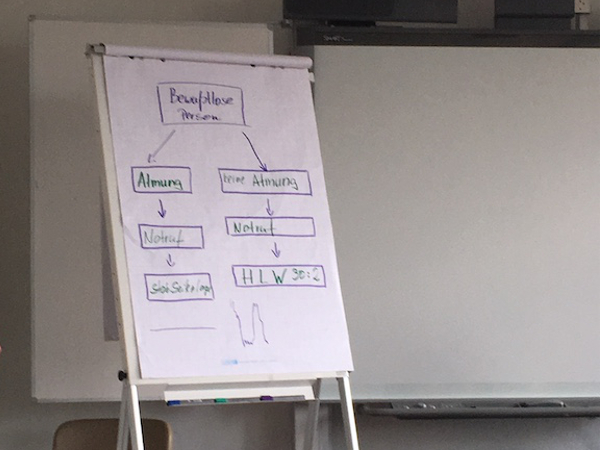 Bewußtlose
Person
Atmung
keine Atmung
Notruf
Notruf
stabSeitenlage
HLW 30:2